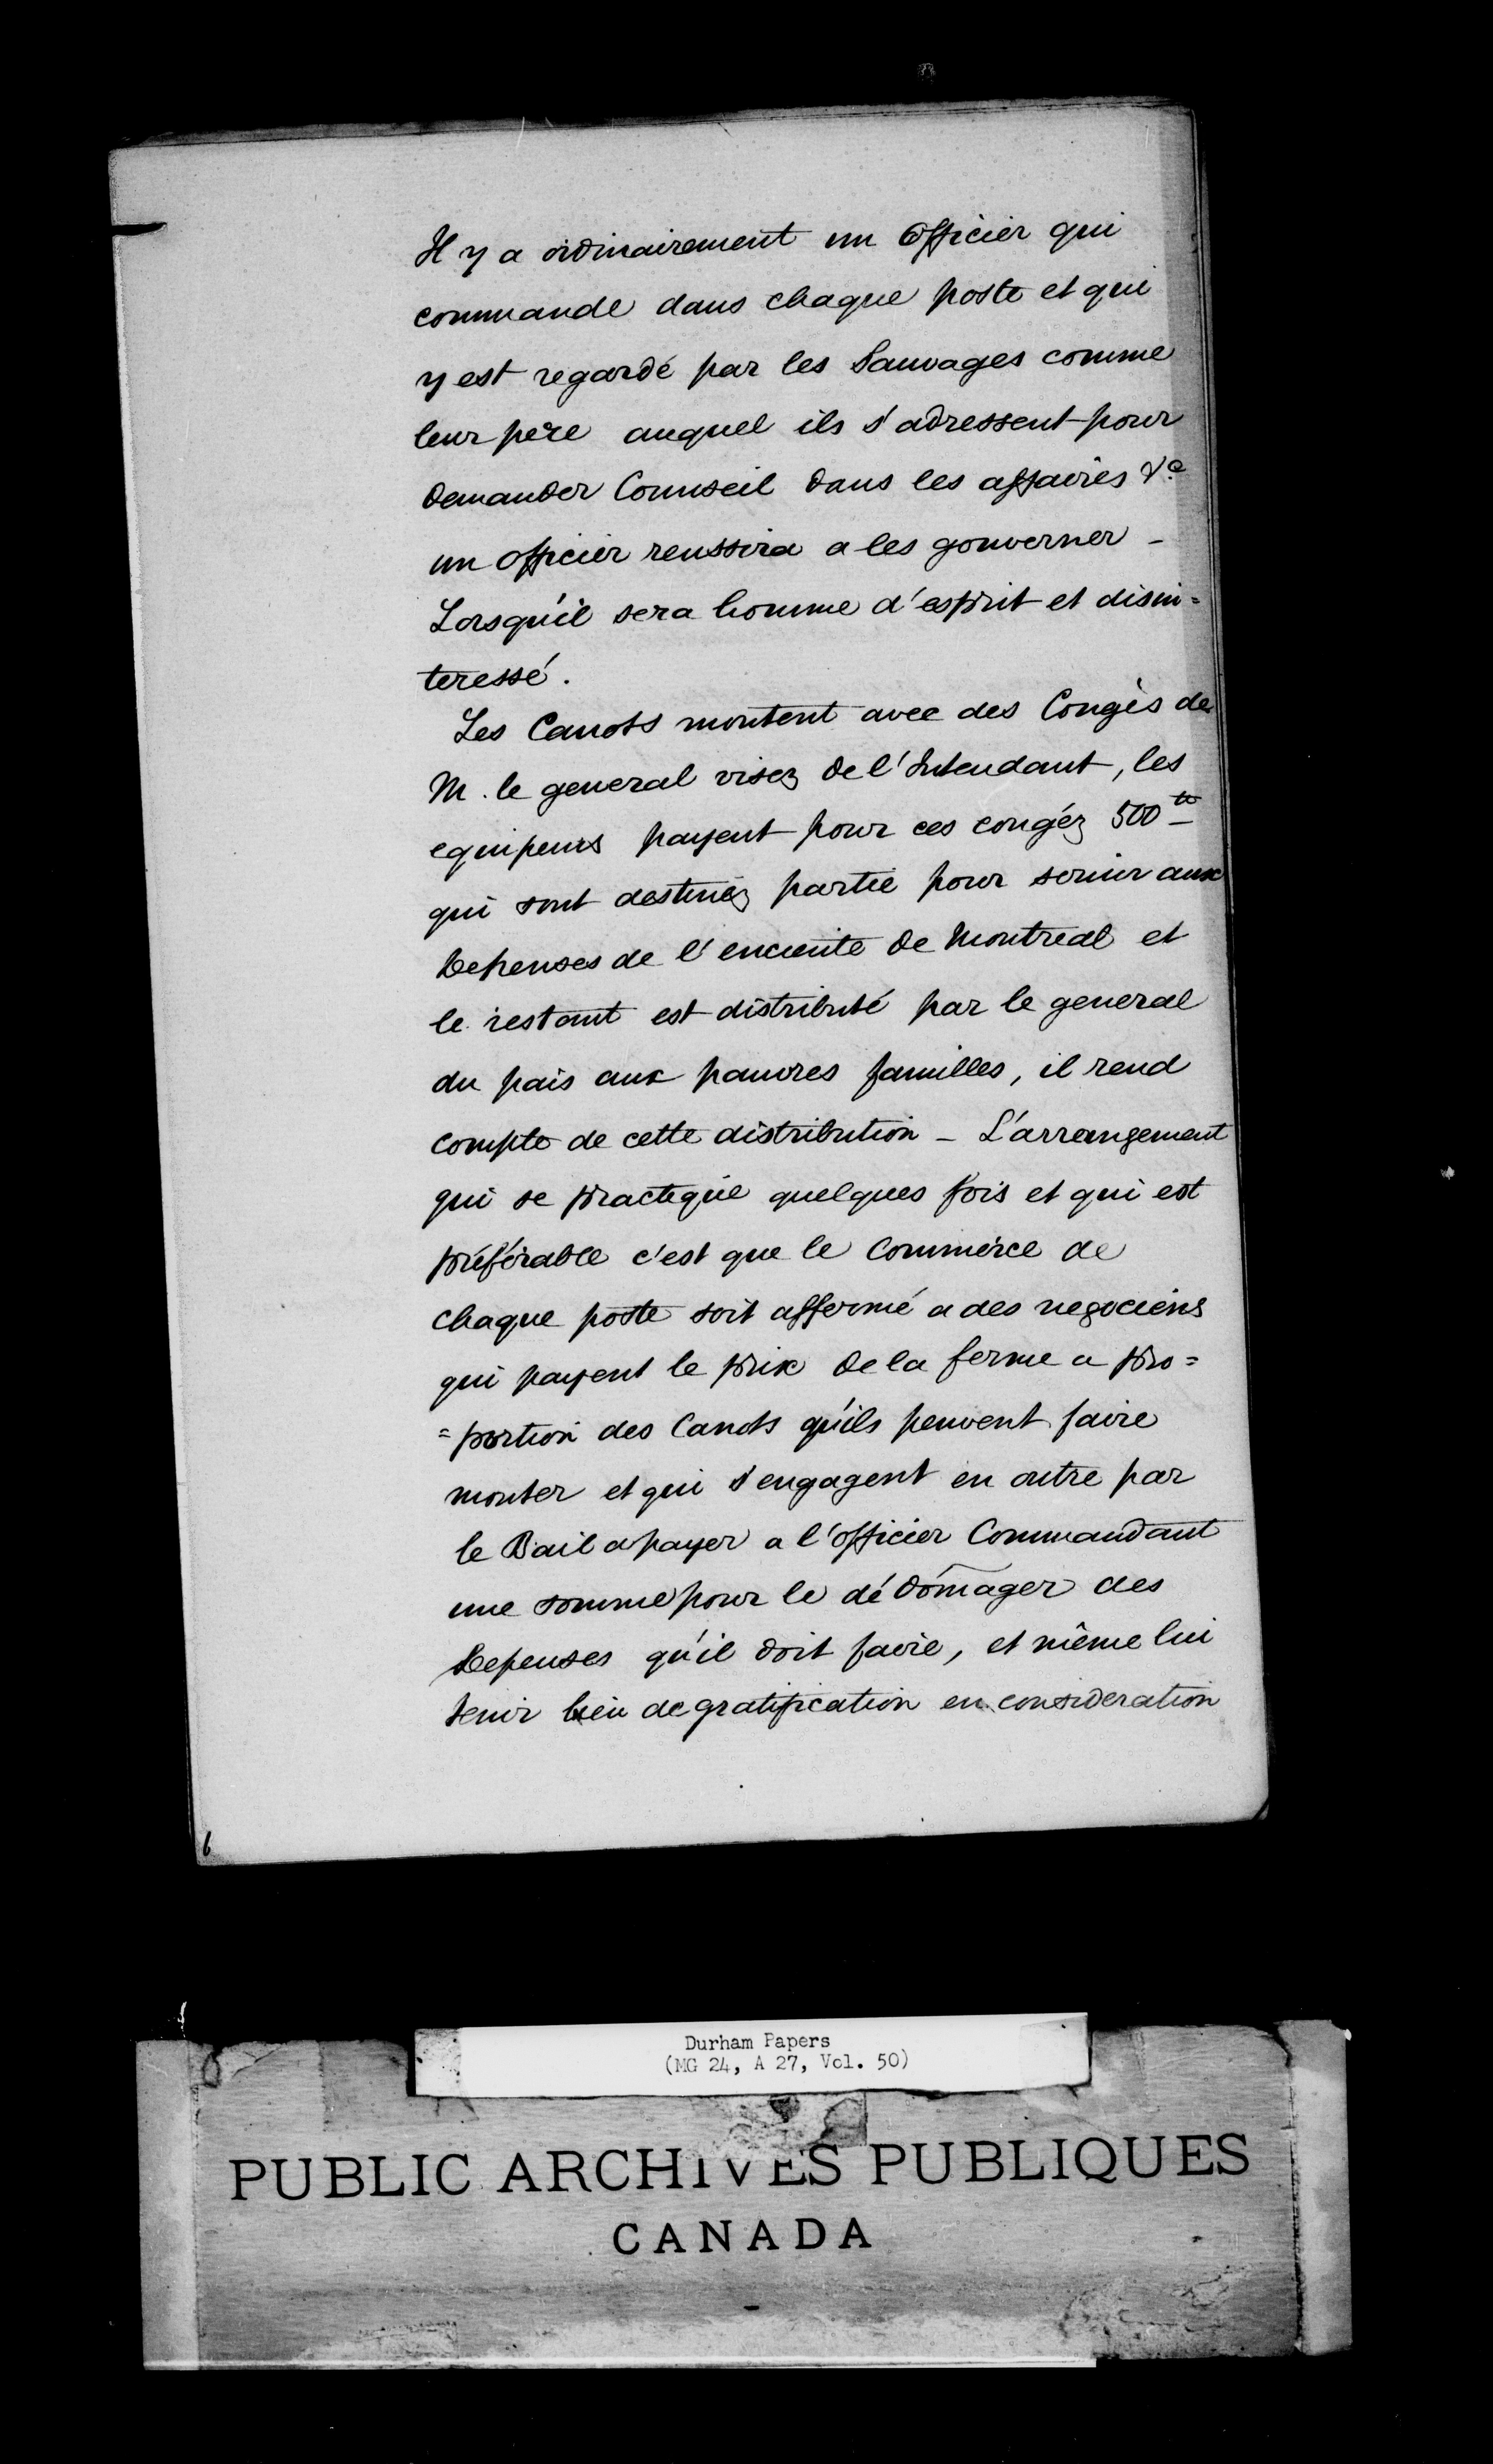 Il y a ordinairement un Officier qui
commande dans chaque poste et qui
y est regardé par les Sauvages comme
leur pere auquel ils s'adressent pour
demander Connseil dans les affaires &c
un officier reussira a les gouverner -
Lorsqu'il sera homme d'esprit et disin=
teressé.
Les Canots montent avec des Congés de
M. le general visez de l'Intendant, les
equipeurs payent pour ces congéz 500tt
qui sont destinéz partie pour servir aux
Depenses de l'enciente de Montreal et
le restant est distribué par le general
du païs aux pauvres familles, il rend
compte de cette distribution - L'arrangement
qui se practique quelques fois et qui est
préférable c'est que le Commerce de
chaque poste soit affermé a des negociens
qui payent le prix de la ferme a pro=
=portion des Canots qu'ils peuvent faire
monter et qui s'engagent en outre par
le Bail a payer a l'officier Commandant
une somme pour le dédomager des
Depenses qu'il doit faire, et même lui
tenir lieu de gratification en consideration
6
Durham Papers
(MG 24, A 27, Vol. 50)
PUBLIC ARCHIVES PUBLIQUES
CANADA